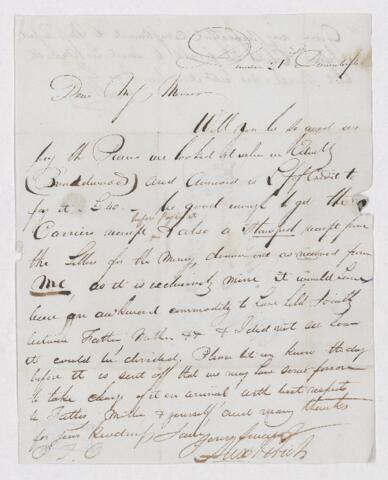 21st December
Dear Mrs
Will you be so good as
buy the Piano we looked at when in
(Broadwood) and annexed is Credit to
pay it £40 - be good enough to get the
before paying it
Carriers receipt & also a Stamped receipt from
the Sellers for the Money, drawn out as received from
Me, as it is exclusively mine, it would
been an awkward commodity to have held Jointly
between Father Mother && & I did not see how
it could be divided, Please let me know the day
before it is sent off that we may have some person
to take charge of it on arrival with best respects
to Father, Mother & yourself and many thanks
for your kindness
yours sincerely